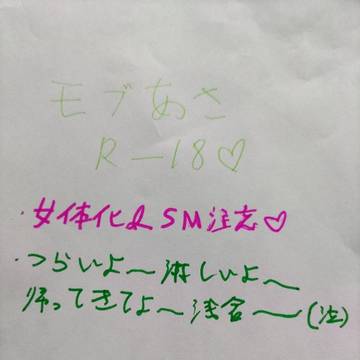 モブあさ
R-18♡
・女体化&SM注意♡
・つらいよ〜淋しいよ〜
帰ってきてよ〜浅倉〜(泣)